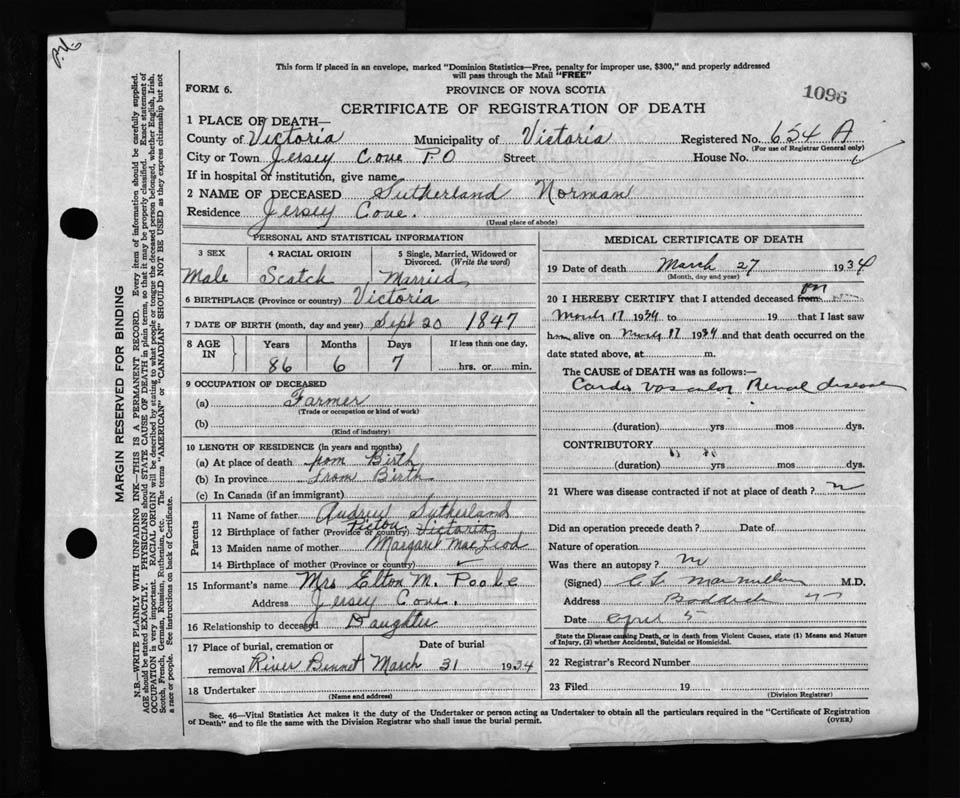 P.V.
This form if placed in an envelope, marked "Dominion Statistics—Free, penalty for improper use, $300," and properly addressed
will pass through the Mail "FREE"
FORM 6.
PROVINCE OF NOVA SCOTIA
1096
CERTIFICATE OF REGISTRATION OF DEATH
1 PLACE OF DEATH—
County of Victoria Municipality of Victoria Registered No. 654 A
(For use of Registrar General only)
City or Town Jersey Cove P.O Street House No.
If in hospital or institution, give name
2 NAME OF DECEASED Sutherland Norman
Residence Jersey Cove.
(Usual place of abode)
PERSONAL AND STATISTICAL INFORMATION
3 SEX 4 RACIAL ORIGIN 5 Single, Married, Widowed or Divorced. (Write the word)
Male Scotch Married
6 BIRTHPLACE (Province or country) Victoria
7 DATE OF BIRTH (month, day and year) Sept 20 1847
8 AGE IN Years Months Days If less than one day,
86 6 7 hrs. or min.
9 OCCUPATION OF DECEASED
(a) Farmer
(Trade or occupation or kind of work)
(b)
(Kind of industry)
10 LENGTH OF RESIDENCE (in years and months)
(a) At place of death from Birth
(b) In province From Birth
(c) In Canada (if an immigrant)
Parents
11 Name of father Andrew Sutherland
12 Birthplace of father (Province or country) Pictou Victoria
13 Maiden name of mother Margaret MacLeod
14 Birthplace of mother (Province or country)
15 Informant's name Mrs Elton M.
Address Jersey Cove.
16 Relationship to deceased Daughter
17 Place of burial, cremation or Date of burial
removal River Bennet March 31 1934
18 Undertaker
(Name and address)
MEDICAL CERTIFICATE OF DEATH
19 Date of death March 27 1934
(Month, day and year)
20 I HEREBY CERTIFY that I attended deceased from on
March 17 1934 to 19 that I last saw
him alive on March 17 1934 and that death occurred on the
date stated above, at m.
The CAUSE of DEATH was as follows:—
Cardio Vascular Renal disease
(duration) yrs mos dys.
CONTRIBUTORY
(duration) yrs mos dys.
21 Where was disease contracted if not at place of death?
Did an operation precede death? Date of
Nature of operation
Was there an autopsy? no
(Signed) C L MacMillan M.D.
Address Baddeck
Date April 5
State the Disease causing Death, or in death from Violent Causes, state (1) Means and Nature
of Injury, (2) whether Accidental, Suicidal or Homicidal.
22 Registrar's Record Number
23 Filed 19
(Division Registrar)
Sec. 46—Vital Statistics Act makes it the duty of the Undertaker or person acting as Undertaker to obtain all the particulars required in the "Certificate of Registration
of Death" and to file the same with the Division Registrar who shall issue the burial permit.
(OVER)
MARGIN RESERVED FOR BINDING
N.B.—WRITE PLAINLY WITH UNFADING INK—THIS IS A PERMANENT RECORD. Every item of information should be carefully supplied.
AGE should be stated EXACTLY. PHYSICIANS should STATE CAUSE OF DEATH in plain terms, so that it may be properly classified. Exact statement of
OCCUPATION is very important. RACIAL ORIGIN will be described by stating to what people or tongue the deceased person belonged, whether English, Irish,
Scotch, French, German, Russian, Ruthenian, etc. The terms "AMERICAN" or "CANADIAN" SHOULD NOT BE USED as they express citizenship but not
a race or people. See instructions on back of Certificate.